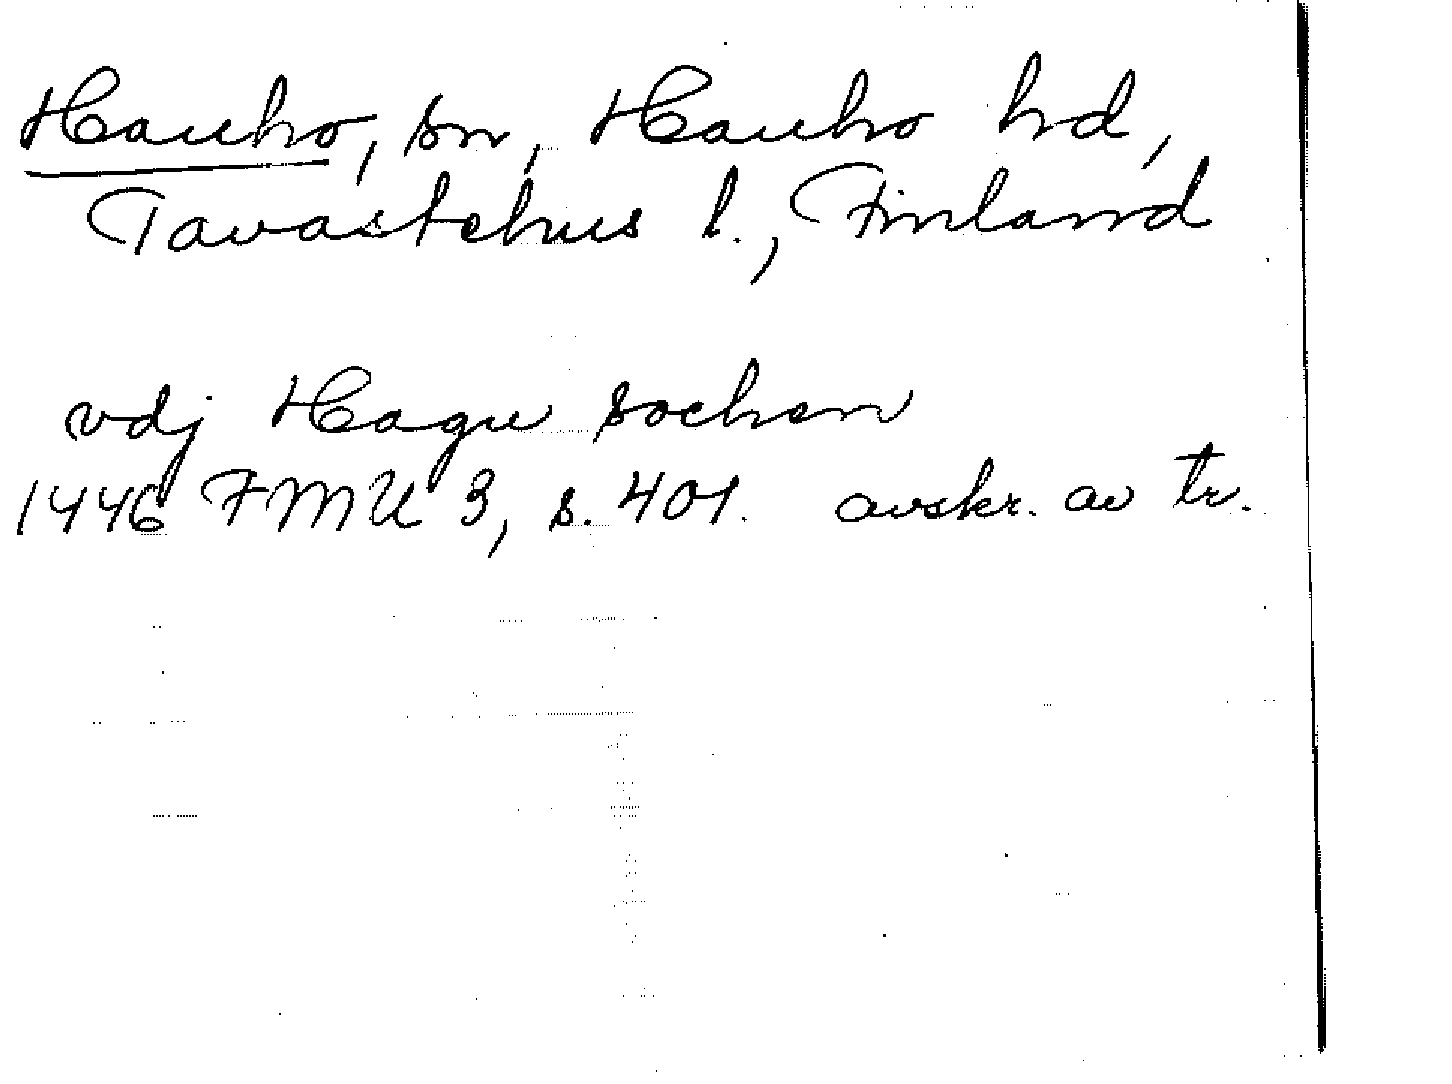 Hauho, sn, Hauho hd,
Tavastehus l., Finland
vdj Hagu sochen
1446 FMU 3, s. 401. avskr. av tr.